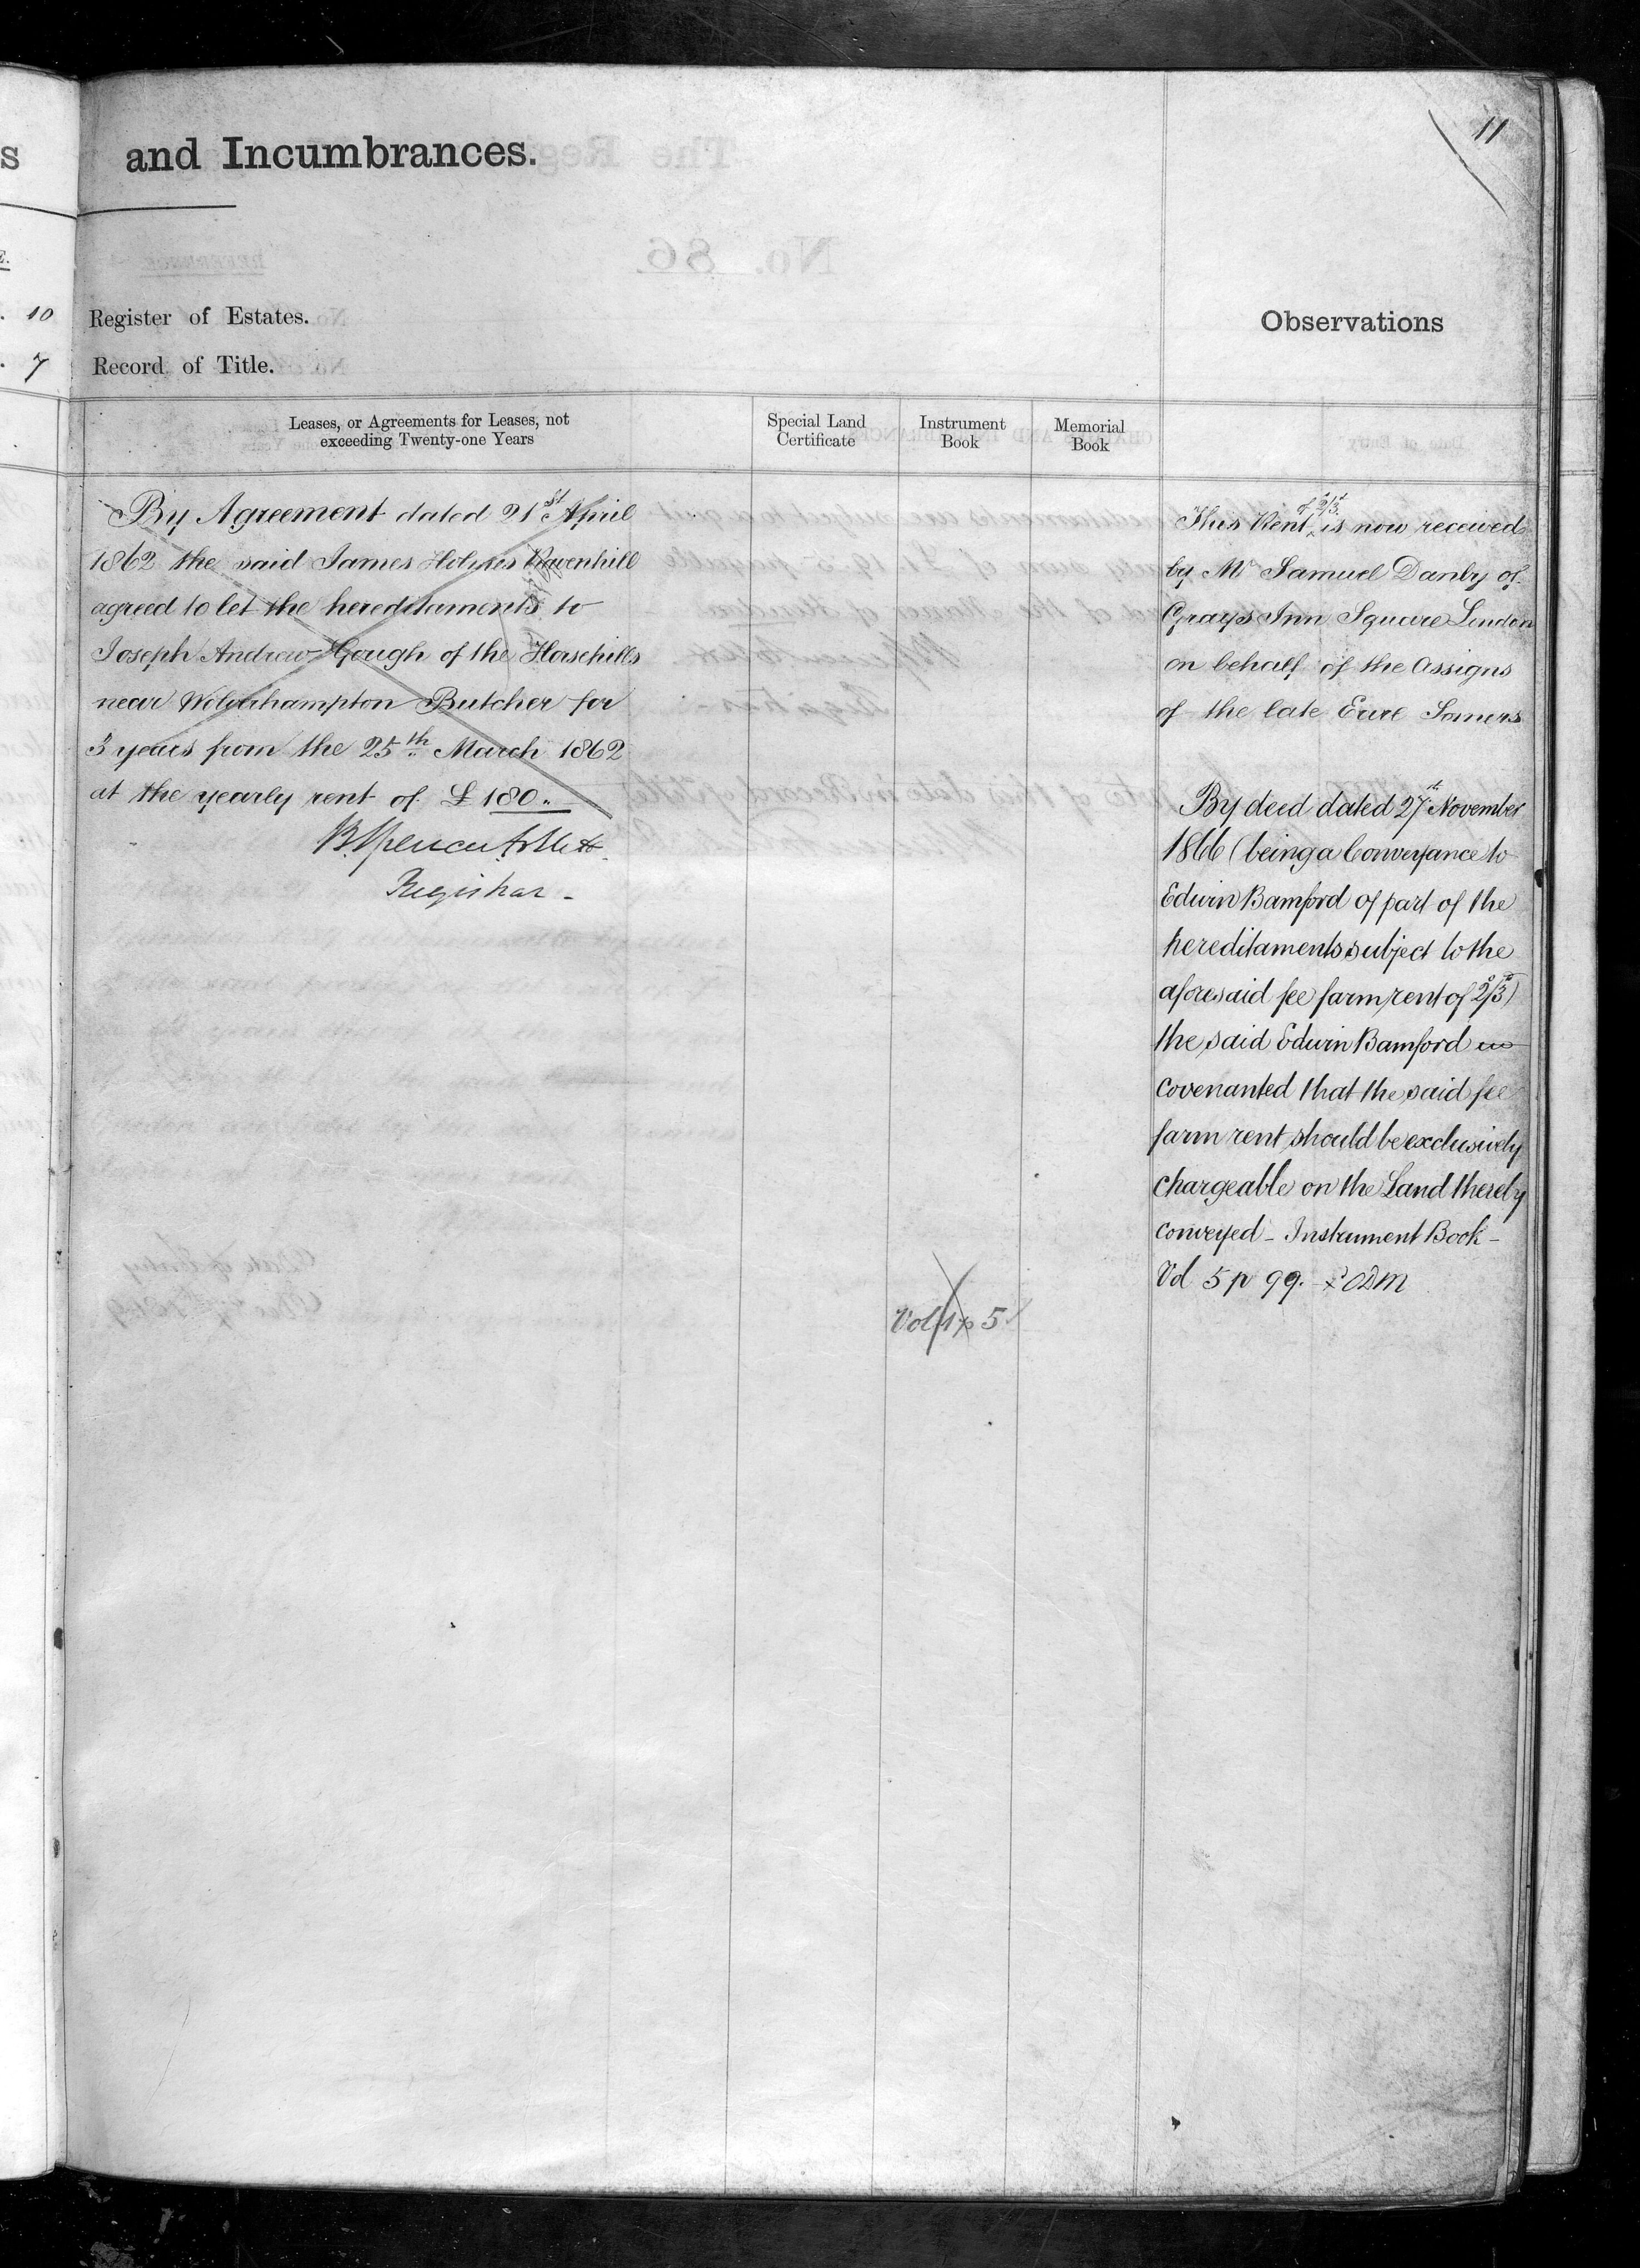 11
and Incumbrances.
10 Register of Estates.
7 Record of Title.
Observations
Leases, or Agreements for Leases, not
exceeding Twenty-one Years
Special Land
Certificate
Instrument
Book
Memorial
Book
By Agreement dated 21st April
1862 the said James Holmes Ravenhill
agreed to let the hereditaments to
Joseph Andrew Gough of the Horsehills
near Wolverhampton Butcher for
3 years from the 25th March 1862
at the yearly rent of £180..
Registrar -
Vol 1 p 5
This Rent of 2/3 is now received
by Mr Samuel Danby of
Grays Inn Square London
on behalf of the Assigns
of the late Earl Somers
By deed dated 27th November
1866 (being a Conveyance to
Edwin Bamford of part of the
hereditaments subject to the
aforesaid fee farm rent of 2/3)
the said Edwin Bamford
covenanted that the said fee
farm rent should be exclusively
chargeable on the Land thereby
conveyed - Instrument Book -
Vol 5 p 99.